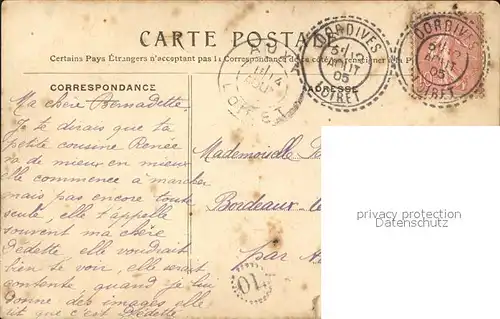 CARTE POSTALE
Certains Pays Étrangers n'acceptent pas la Correspondance de ce côté (se renseigner à la P
CORRESPONDANCE
ADRESSE
DORDIVES
AOUT
05
LOIRET
DORDIVES
AOUT
05
LOIRET
LOIRET
Ma chère Bernadette,
Je te dirais que ta
petite cousine Renée
va de mieux en mieux
elle commence à marcher
mais pas encore toute
seule, elle t'appelle
souvent ma chère
Dedette, elle voudrait
bien te voir, elle serait
contente, quand je lui
donne des images elle
dit que c'est Dédette
Mademoiselle
Bordeaux
par
privacy protection
Datenschutz
10